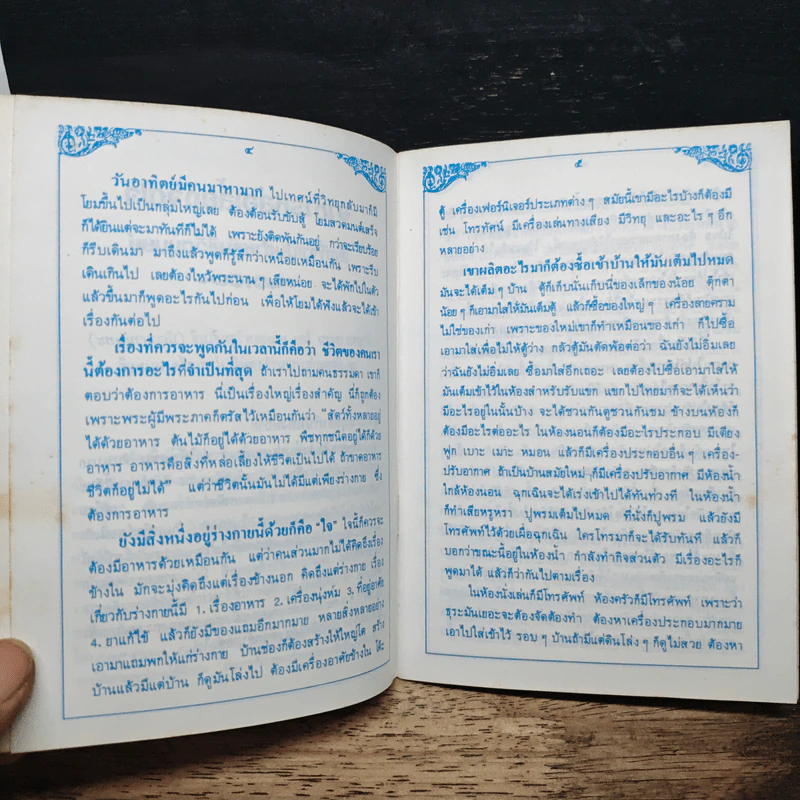 ๔
วันอาทิตย์มีคนมาหามาก ไปเทศน์ที่วิทยุกลับมาก็มี
โยมขึ้นไปเป็นกลุ่มใหญ่เลย ต้องต้อนรับขับสู้ โยมสวดมนต์เสร็จ
ก็ได้ยินแต่จะมาทันทีก็ไม่ได้ เพราะยังติดพันกันอยู่ กว่าจะเรียบร้อย
ก็รีบเดินมา มาถึงแล้วพูดก็รู้สึกว่าเหนื่อยเหมือนกัน เพราะรีบ
เดินเกินไป เลยต้องไหว้พระนาน ๆ เสียหน่อย จะได้พักไปในตัว
แล้วขึ้นมาก็พูดอะไรกันไปก่อน เพื่อให้โยมได้ฟังแล้วจะได้เข้า
เรื่องกันต่อไป
เรื่องที่ควรจะพูดกันในเวลานี้ก็คือว่า ชีวิตของคนเรา
นี้ต้องการอะไรที่จำเป็นที่สุด ถ้าเราไปถามคนธรรมดา เขาก็
ตอบว่าต้องการอาหาร นี่เป็นเรื่องใหญ่เรื่องสำคัญ นี่ก็ถูกต้อง
เพราะพระผู้มีพระภาคก็ตรัสไว้เหมือนกันว่า "สัตว์ทั้งหลายอยู่
ได้ด้วยอาหาร ต้นไม้ก็อยู่ได้ด้วยอาหาร พืชทุกชนิดอยู่ได้ก็ด้วย
อาหาร อาหารคือสิ่งที่หล่อเลี้ยงให้ชีวิตเป็นไปได้ ถ้าขาดอาหาร
ชีวิตก็อยู่ไม่ได้" แต่ว่าชีวิตนั้นมันไม่ได้มีแต่เพียงร่างกาย ซึ่ง
ต้องการอาหาร
ยังมีสิ่งหนึ่งอยู่ร่างกายนี้ด้วยก็คือ "ใจ" ใจนี้ก็ควรจะ
ต้องมีอาหารด้วยเหมือนกัน แต่ว่าคนส่วนมากไม่ได้คิดถึงเรื่อง
ข้างใน มักจะมุ่งคิดถึงแต่เรื่องข้างนอก คิดถึงแต่ร่างกาย เรื่อง
เกี่ยวกับร่างกายนี้มี 1. เรื่องอาหาร 2. เครื่องนุ่งห่ม 3. ที่อยู่อาศัย
4. ยาแก้ไข้ แล้วก็ยังมีของแถมอีกมากมาย หลายสิ่งหลายอย่าง
เอามาแถมพกให้แก่ร่างกาย บ้านช่องก็ต้องสร้างให้ใหญ่โต สร้าง
บ้านแล้วมีแต่บ้าน ก็ดูมันโล่งไป ต้องมีเครื่องอาศัยข้างใน โต๊ะ
๕
ตู้ เครื่องเฟอร์นิเจอร์ประเภทต่าง ๆ สมัยนี้เขามีอะไรบ้างก็ต้องมี
เช่น โทรทัศน์ มีเครื่องเล่นทางเสียง มีวิทยุ และอะไร ๆ อีก
หลายอย่าง
เขาผลิตอะไรมาก็ต้องซื้อเข้าบ้านให้มันเต็มไปหมด
มันจะได้เต็ม ๆ บ้าน ตู้ก็เก็บนั่นเก็บนี่ของเล็กของน้อย ตุ๊กตา
น้อย ๆ ก็เอามาใส่ให้มันเต็มตู้ แล้วก็ซื้อของใหญ่ ๆ เครื่องลายคราม
ไม่ใช่ของเก่า เพราะของใหม่เขาก็ทำเหมือนของเก่า ก็ไปซื้อ
เอามาใส่เพื่อไม่ให้ตู้ว่าง กลัวตู้มันตัดพ้อต่อว่า ฉันยังไม่อิ่มเลย
ว่าฉันยังไม่อิ่มเลย ซื้อมาใส่อีกเถอะ เลยต้องไปซื้อเอามาใส่ให้
มันเต็มเข้าไว้ในห้องสำหรับรับแขก แขกไปไทยมาก็จะได้เห็นว่า
มีอะไรอยู่ในนั้นบ้าง จะได้ชวนกันดูชวนกันชม ข้างบนห้องก็
ต้องมีอะไรต่ออะไร ในห้องนอนก็ต้องมีอะไรประกอบ มีเตียง
ฟูก เบาะ เมาะ หมอน แล้วก็มีเครื่องประกอบอื่น ๆ เครื่อง-
ปรับอากาศ ถ้าเป็นบ้านสมัยใหม่ ก็มีเครื่องปรับอากาศ มีห้องน้ำ
ใกล้ห้องนอน ฉุกเฉินจะได้เร่งเข้าไปได้ทันท่วงที ในห้องน้ำ
ก็ทำเสียหรูหรา ปูพรมเต็มไปหมด ที่นั่งก็ปูพรม แล้วยังมี
โทรศัพท์ไว้ด้วยเผื่อฉุกเฉิน ใครโทรมาก็จะได้รับทันที แล้วก็
บอกว่าขณะนี้อยู่ในห้องน้ำ กำลังทำกิจส่วนตัว มีเรื่องอะไรก็
พูดมาได้ แล้วก็ว่ากันไปตามเรื่อง
ในห้องนั่งเล่นก็มีโทรศัพท์ ห้องครัวก็มีโทรศัพท์ เพราะว่า
ธุระมันเยอะจะต้องจัดต้องทำ ต้องหาเครื่องประกอบมากมาย
เอาไปใส่เข้าไว้ รอบ ๆ บ้านถ้ามีแต่ดินโล่ง ๆ ก็ดูไม่สวย ต้องหา